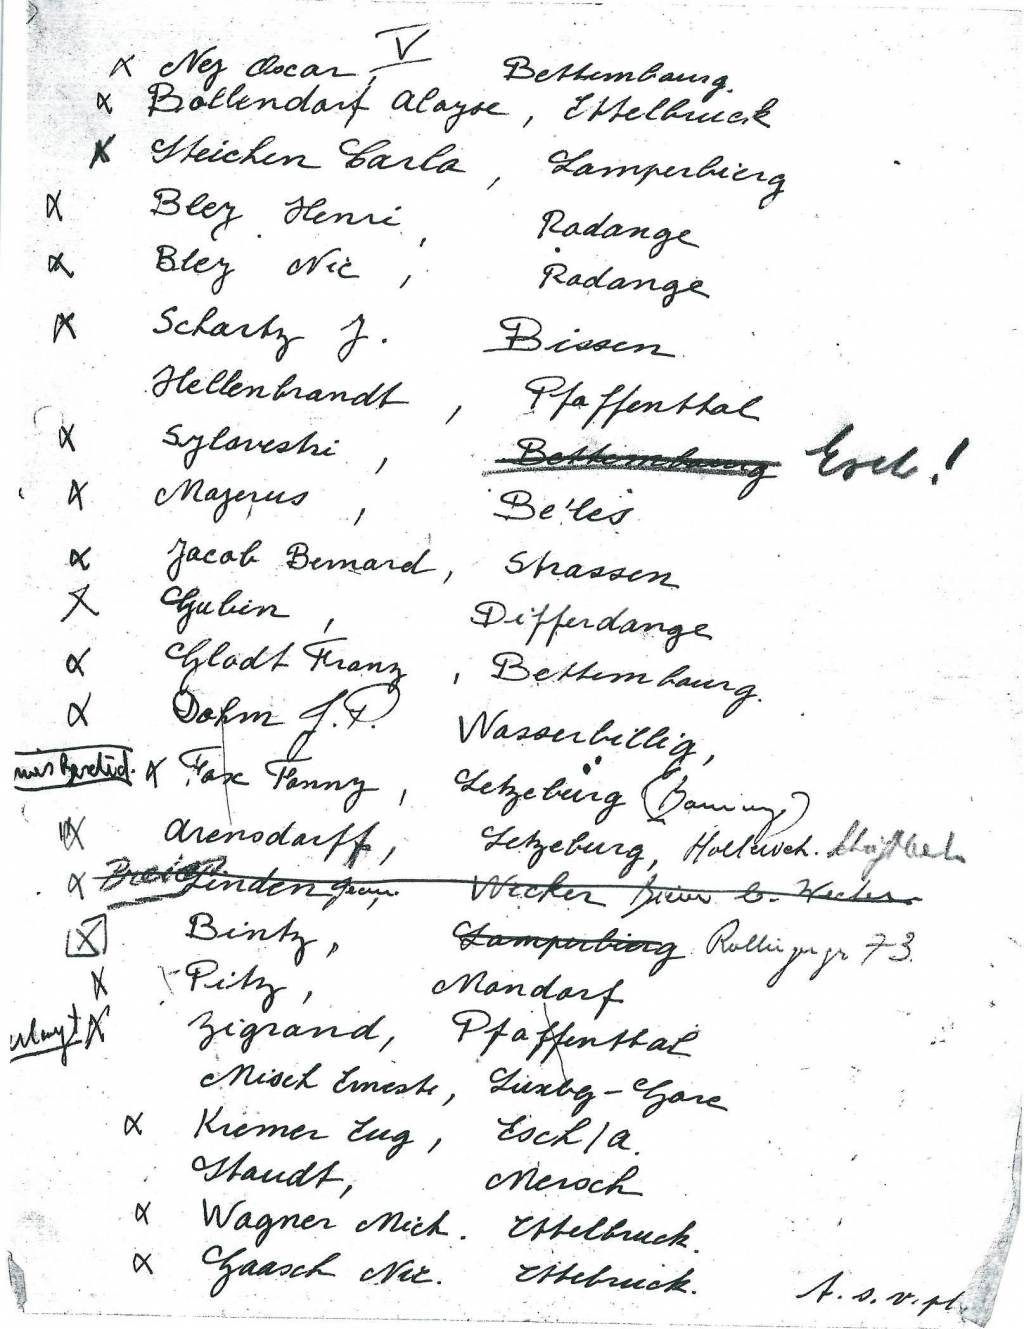 V
x Ney Oscar, Bettembourg.
x Bollendorf Aloyse, Ettelbruck
x Steichen Carlo, Lamperbierg
x Bley Henri, Rodange
x Bley Nic, Rodange
x Schartz J. Bissen
Hellenbrandt, Pfaffenthal
x Sylvestri, Bettembourg Esch!
x Majerus, Be'les
x Jacob Bernard, Strassen
x Gubin, Differdange
x Glodt Franz, Bettembourg.
x Dohm J.P. Wasserbillig,
x Fox Fonny, Letzebürg
x Arensdorff, Letzeburg, Hollerich.
x Linden Wecker
x Bintz, Lamperbierg Rollingergr 73.
x Pitz, Mondorf
x Zigrand, Pfaffenthal
Misch Erneste, Luxbg-Gare
x Kremer Eug, Esch/a.
Staudt, Mersch
x Wagner Mich. Ettelbruck.
x Gaasch Nic. Ettebruck.
T. s. v. pl.